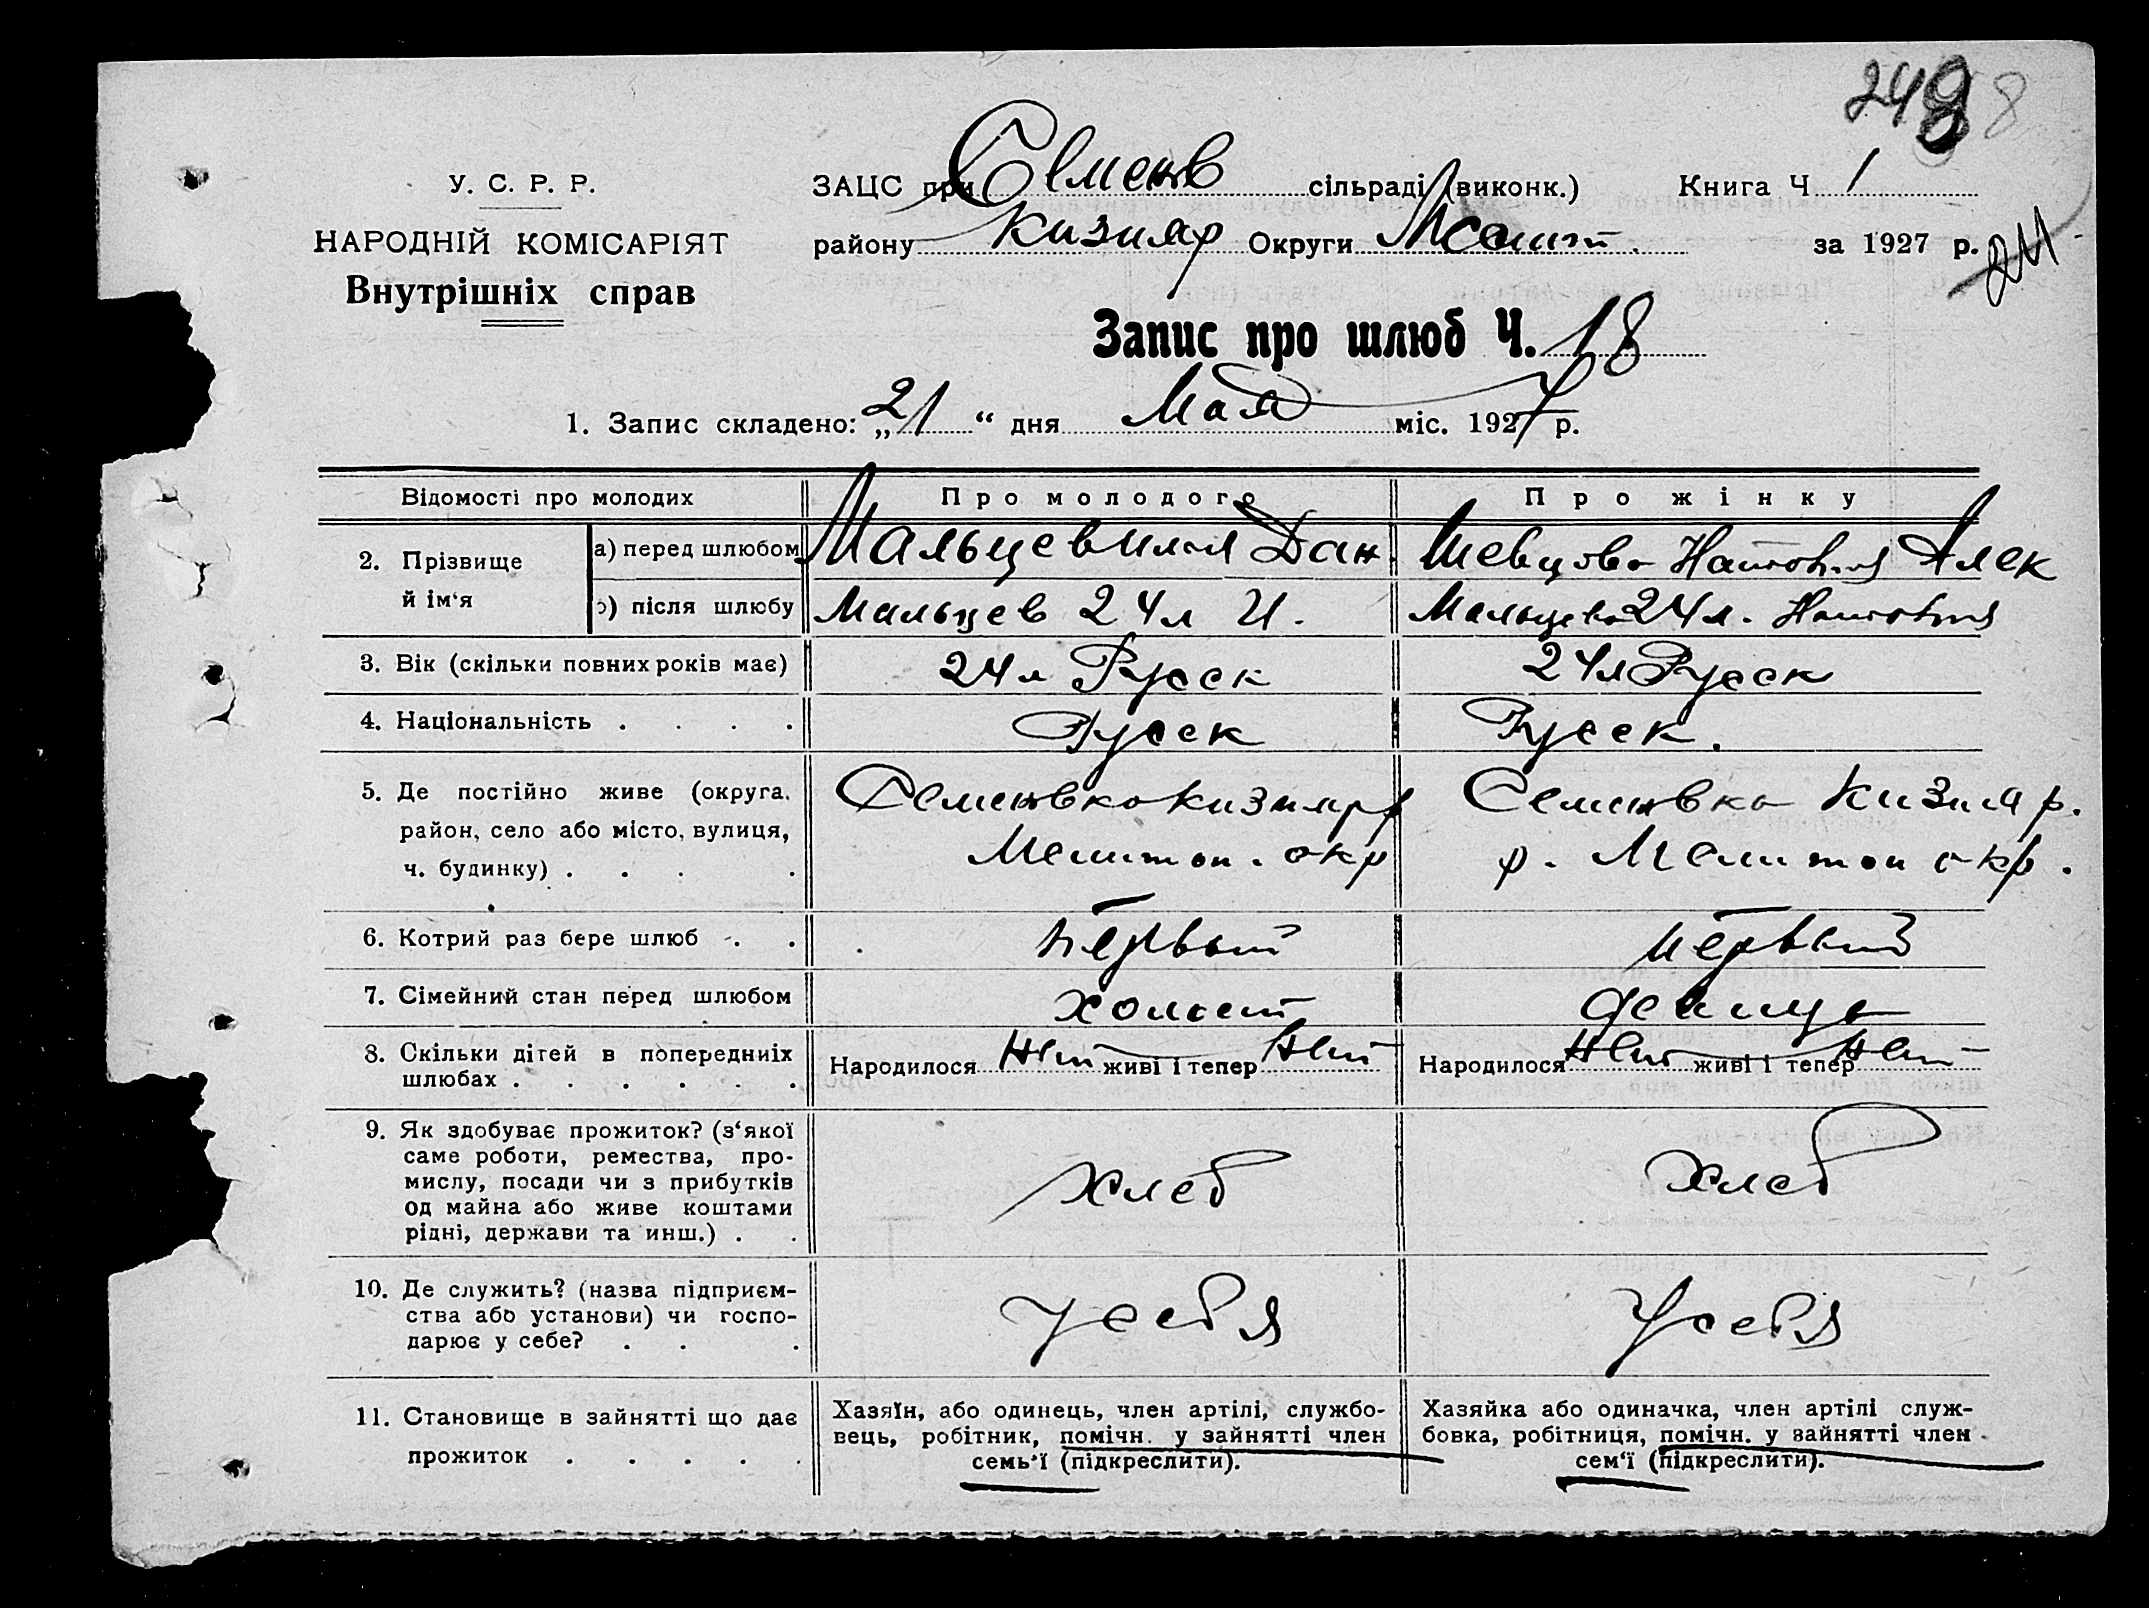 248 8
У. С. Р. Р.
ЗАЦС при Семенв сільраді (виконк.) Книга Ч 1
НАРОДНІЙ КОМІСАРІЯТ
району Кизияр Округи Мелит. за 1927 р.
Внутрішніх справ
Запис про шлюб Ч. 18
1. Запис складено: „21“ дня Мая міс. 1927 р.
Відомості про молодих Про молодого Про жінку
2. Прізвище й ім‘я
а) перед шлюбом Мальцев Дан. Шевцова Алек
б) після шлюбу Мальцев 24л И. Мальцева 24л.
3. Вік (скільки повних років має) 24л Русск 24л Русск
4. Національність . . . . Русск Русск.
5. Де постійно живе (округа, Семеновка Кизияр р Семеновка Кизияр.
район, село або місто, вулиця, Мелитоп. окр р. Мелитоп окр.
ч. будинку) . . . .
6. Котрий раз бере шлюб . . Первый Первый
7. Сімейний стан перед шлюбом холост девица
8. Скільки дітей в попередниіх Народилося Нет живі і тепер Нет Народилося Нет живі і тепер Нет
шлюбах . . . . . .
9. Як здобуває прожиток? (з‘якої
саме роботи, ремества, про-
мислу, посади чи з прибутків Хлеб Хлеб
од майна або живе коштами
рідні, держави та инш.) . .
10. Де служить? (назва підприєм-
ства або установи) чи госпо- У себя У себя
дарює у себе? . . .
11. Становище в зайнятті що дає Хазяїн, або одинець, член артілі, службо- Хазяйка або одиначка, член артілі служ-
прожиток . . . . . вець, робітник, помічн. у зайнятті член бовка, робітниця, помічн. у зайнятті член
семь‘ї (підкреслити). сем‘ї (підкреслити).